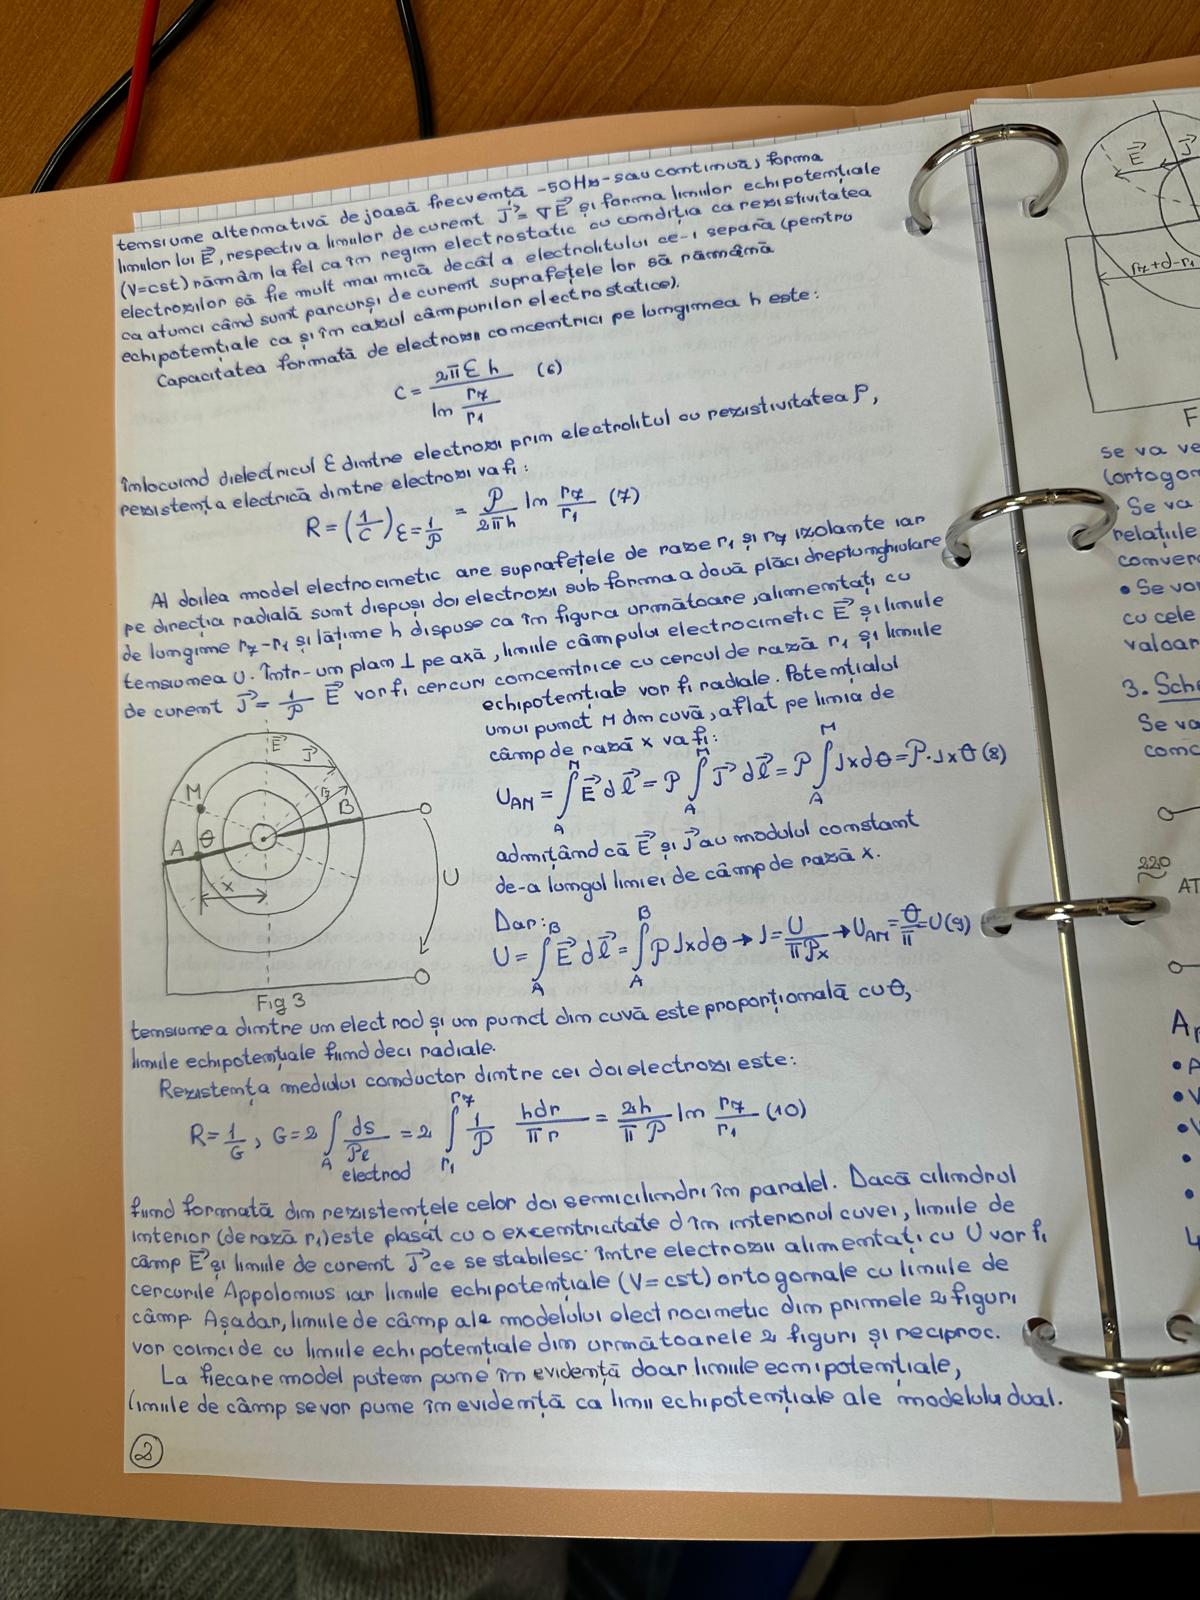 tensiune alternativă de joasă frecvență -50Hz- sau continuă, forma
liniilor lui E⃗, respectiv a liniilor de curent J⃗ = ∇E⃗ și forma liniilor echipotențiale
(V=cst) rămân la fel ca în regim electrostatic cu condiția ca rezistivitatea
electrozilor să fie mult mai mică decât a electrolitului ce-i separă (pentru
ca atunci când sunt parcurși de curent suprafețele lor să rămână
echipotențiale ca și în cazul câmpurilor electrostatice).
Capacitatea formată de electrozii concentrici pe lungimea h este:
C = 2πεh / ln(r₇/r₁) (6)
Înlocuind dielectricul ε dintre electrozi prin electrolitul cu rezistivitatea ρ,
rezistența electrică dintre electrozi va fi:
R = (1/C)_{ε=1/ρ} = ρ/2πh ln r₇/r₁ (7)
Al doilea model electrocinetic are suprafețele de raze r₁ și r₇ izolante iar
pe direcția radială sunt dispuși doi electrozi sub forma a două plăci dreptunghiulare
de lungime r₇-r₁ și lățime h dispuse ca în figura următoare, alimentați cu
tensiunea U. Într-un plan ⊥ pe axă, liniile câmpului electrocinetic E⃗ și liniile
de curent J⃗ = 1/ρ E⃗ vor fi cercuri concentrice cu cercul de rază r₁ și liniile
echipotențiale vor fi radiale. Potențialul
unui punct M din cuvă, aflat pe linia de
câmp de rază x va fi:
U_AM = ∫_A^M E⃗ dl⃗ = ρ ∫_A^M J⃗ dl⃗ = ρ ∫_A^M Jxdθ = ρ·Jxθ (8)
admițând că E⃗ și J⃗ au modulul constant
de-a lungul liniei de câmp de rază x.
Dar:
U = ∫_A^B E⃗ dl⃗ = ∫_A^B ρJxdθ → J = U/πρx → U_AM = θ/π = U (9)
E⃗ J⃗
r₇
M
B
A θ
x
U
Fig 3
tensiunea dintre un electrod și un punct din cuvă este proporțională cu θ,
liniile echipotențiale fiind deci radiale.
Rezistența mediului conductor dintre cei doi electrozi este:
R = 1/G, G = 2 ∫_A electrod ds/ρl = 2 ∫_{r₁}^{r₇} 1/ρ hdr/πr = 2h/πρ ln r₇/r₁ (10)
fiind formată din rezistențele celor doi semicilindri în paralel. Dacă cilindrul
interior (de rază r₁) este plasat cu o excentricitate d în interiorul cuvei, liniile de
câmp E⃗ și liniile de curent J⃗ ce se stabilesc între electrozii alimentați cu U vor fi
cercurile Appolonius iar liniile echipotențiale (V=cst) ortogonale cu liniile de
câmp. Așadar, liniile de câmp ale modelului electrocinetic din primele 2 figuri
vor coincide cu liniile echipotențiale din următoarele 2 figuri și reciproc.
La fiecare model putem pune în evidență doar liniile echipotențiale,
liniile de câmp se vor pune în evidență ca linii echipotențiale ale modelului dual.
2
E⃗ J⃗
r₇+d-r₁
F
se va ve
(ortogon
• Se va
relațiile
conver
• Se vor
cu cele
valoar
3. Sche
Se va
conc
220
AT